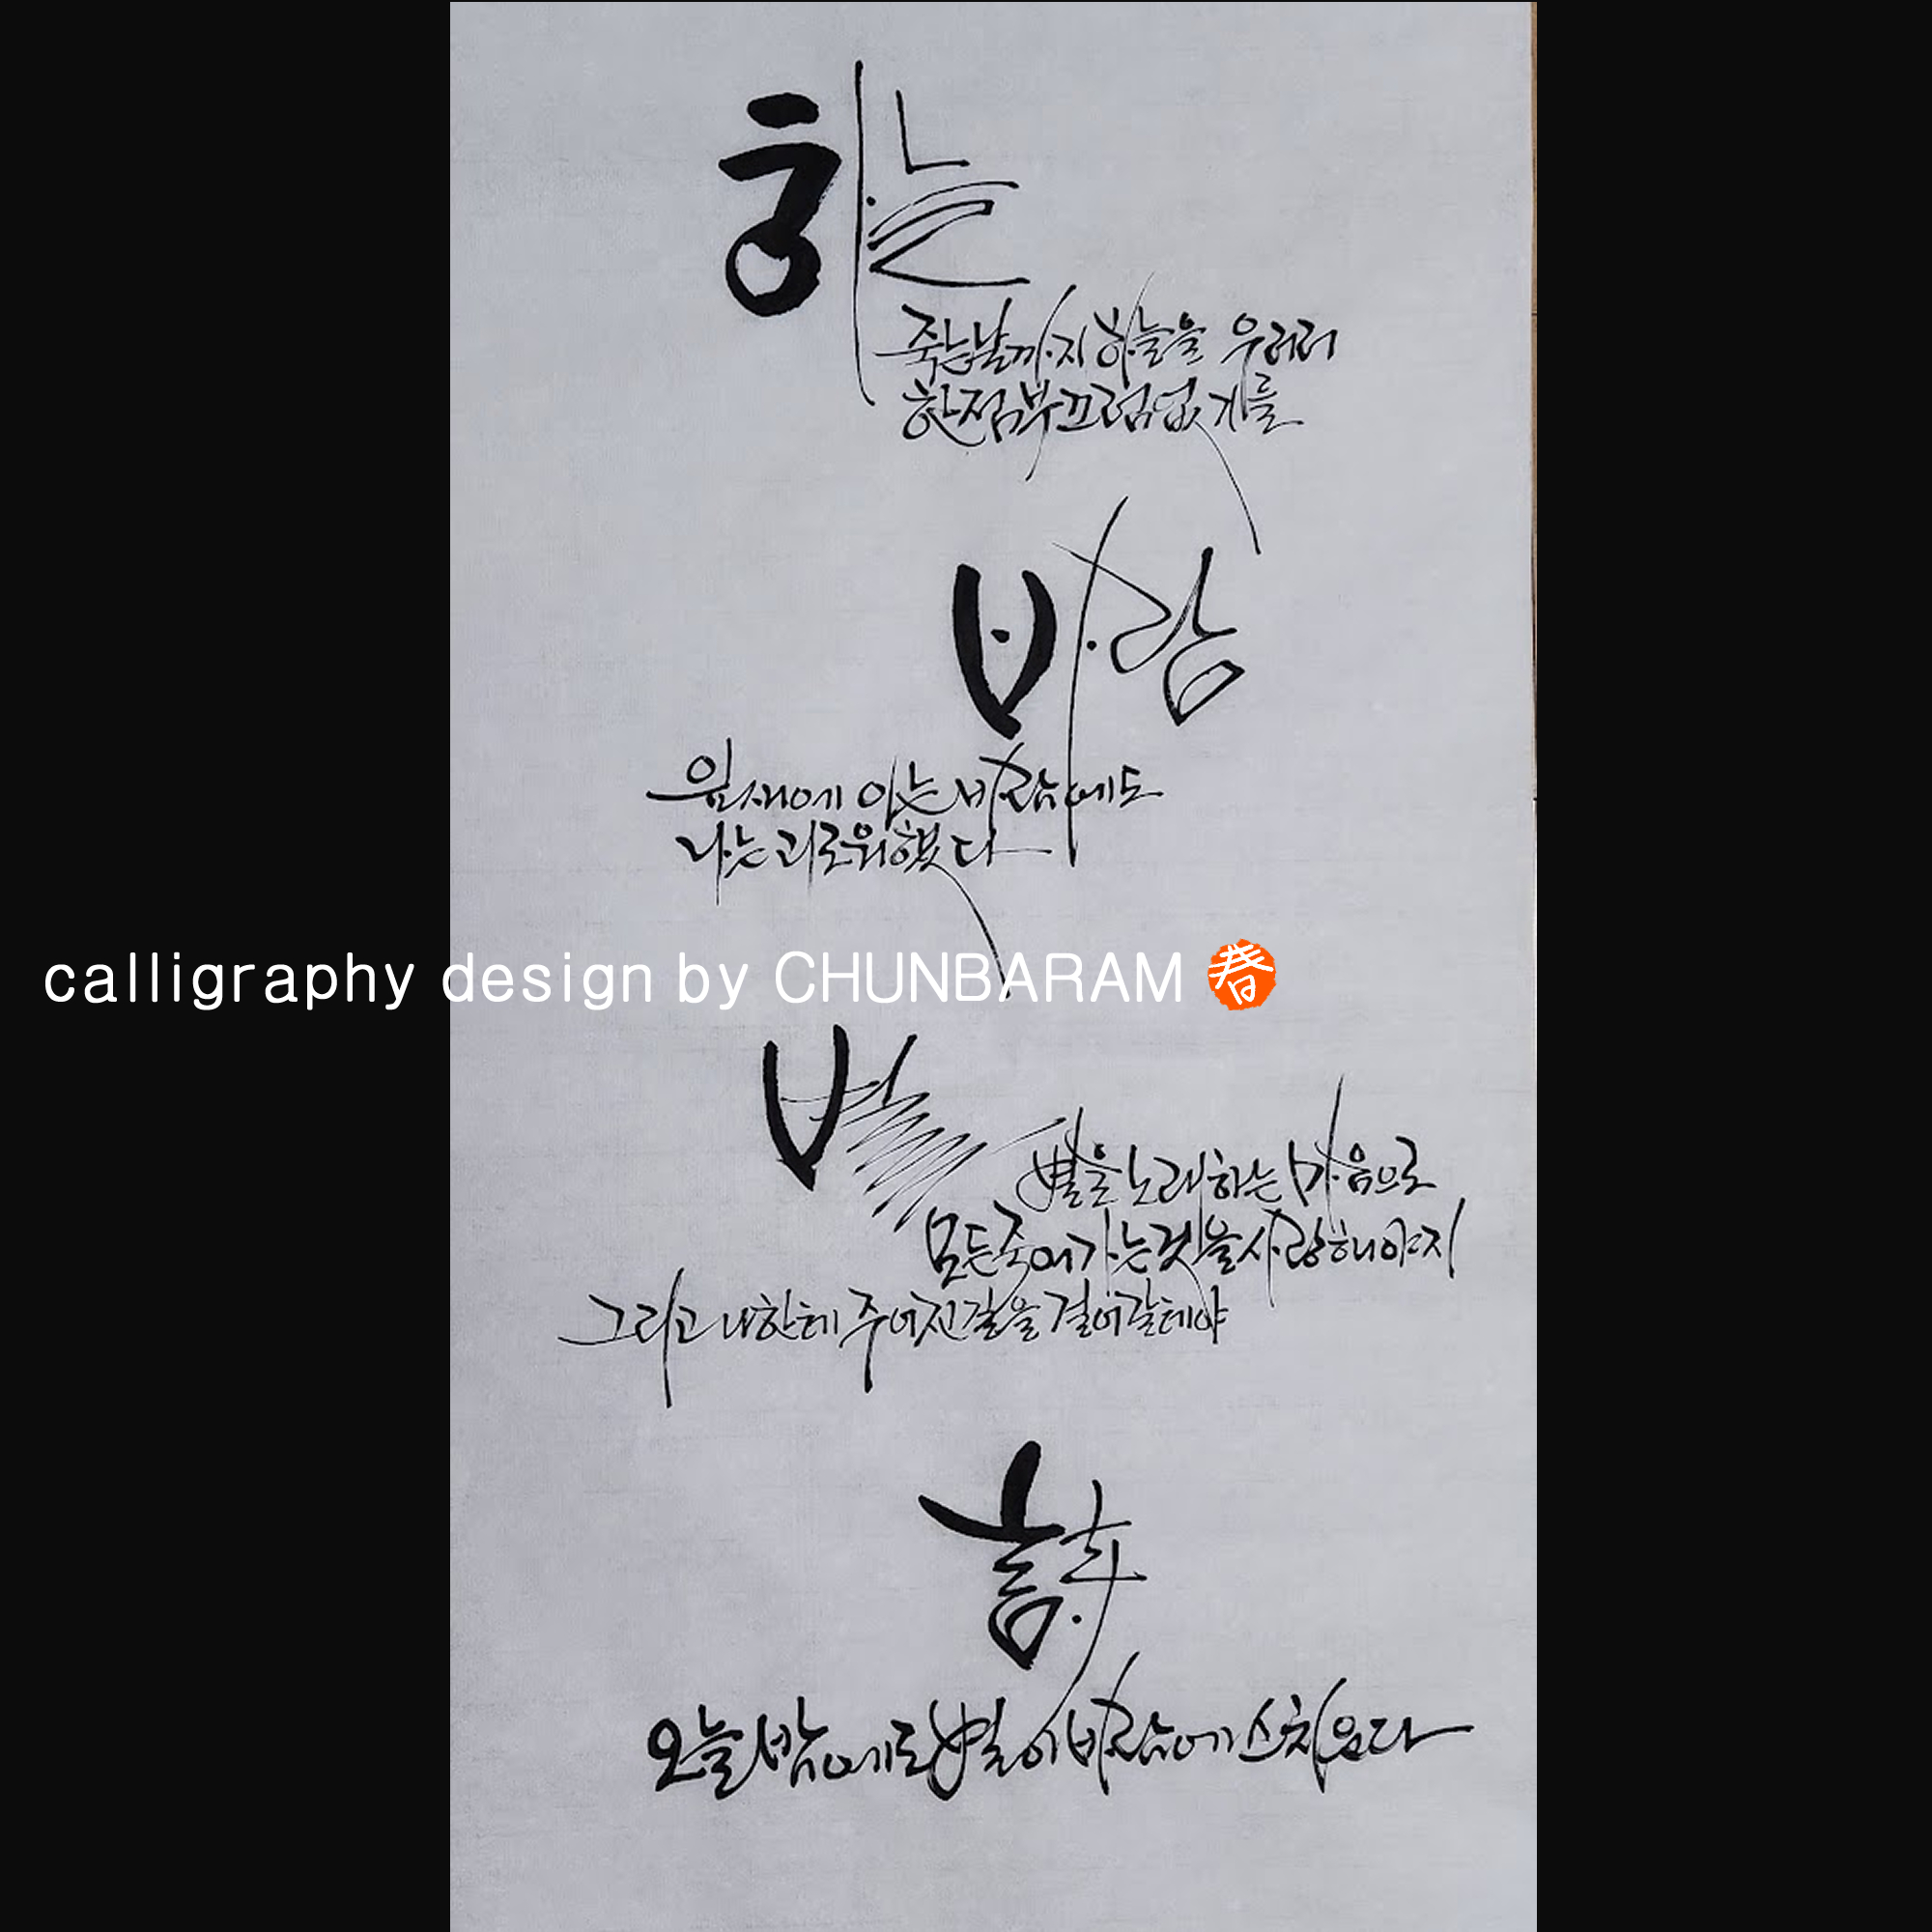 하늘
죽는날까지 하늘을 우러러
한점 부끄럼없기를
바람
잎새에 이는 바람에도
나는 괴로워했다
calligraphy design by CHUNBARAM 春
별
별을 노래하는 마음으로
모든 죽어가는것을 사랑해야지
그리고 나한테 주어진길을 걸어갈테야
詩
오늘밤에도 별이 바람에 스치운다